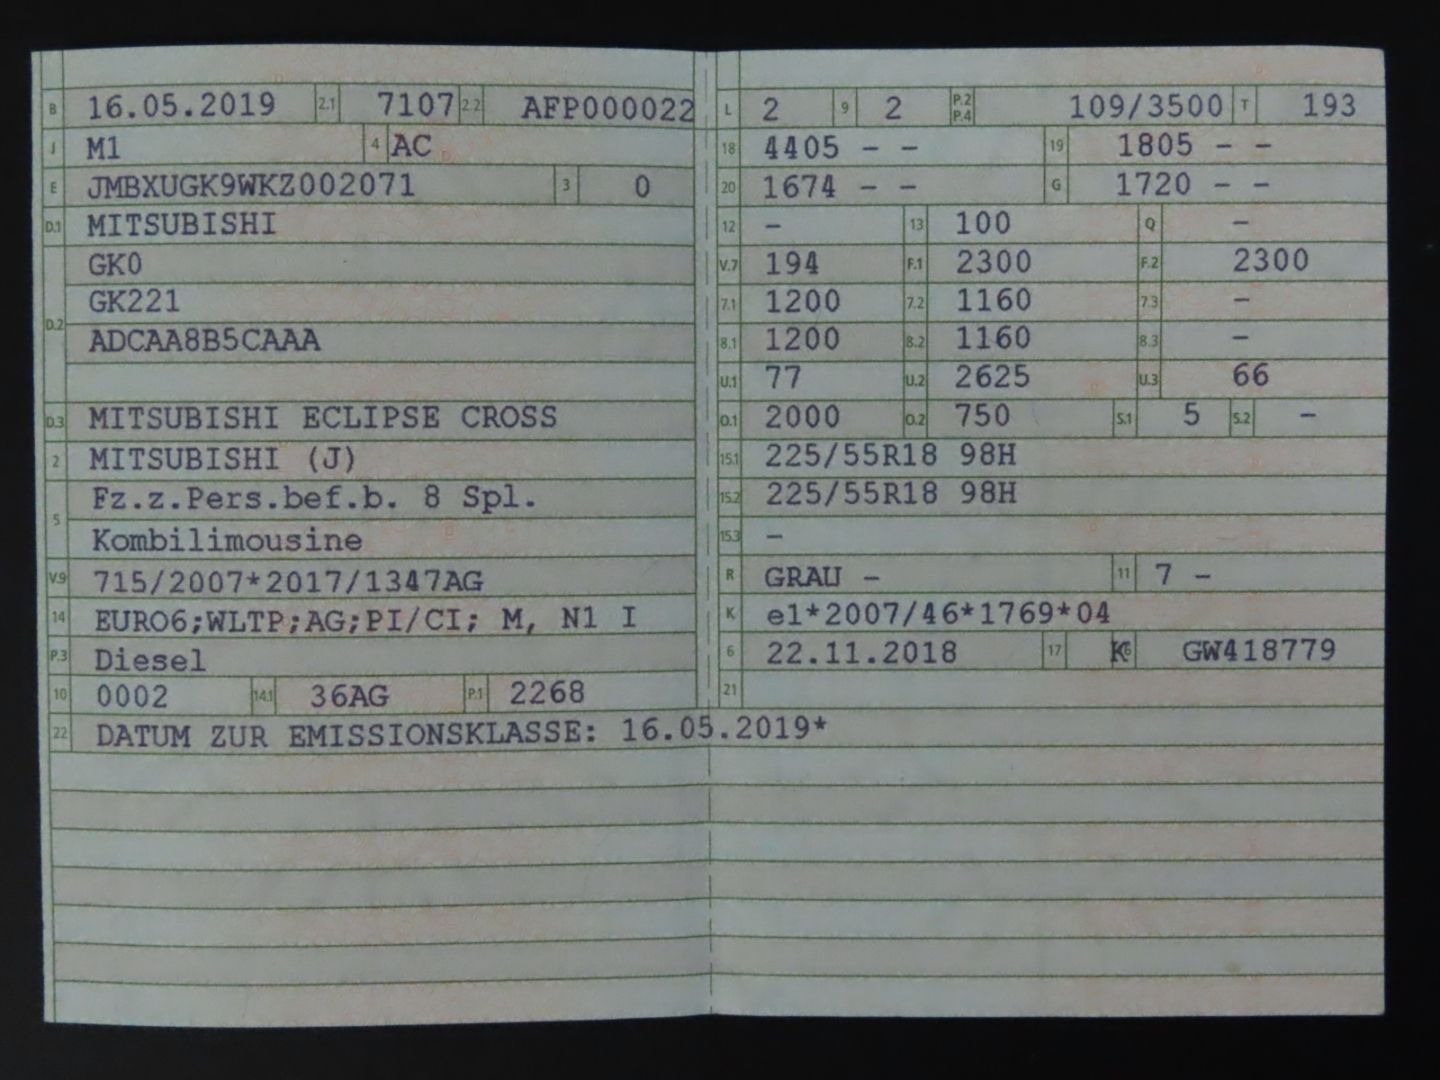 B 16.05.2019 2.1 7107 2.2 AFP000022
J M1 4 AC
E JMBXUGK9WKZ002071 3 0
D.1 MITSUBISHI
D.2 GK0
GK221
ADCAA8B5CAAA
D.3 MITSUBISHI ECLIPSE CROSS
2 MITSUBISHI (J)
5 Fz.z.Pers.bef.b. 8 Spl.
Kombilimousine
V.9 715/2007*2017/1347AG
14 EURO6;WLTP;AG;PI/CI; M, N1 I
P.3 Diesel
10 0002 14.1 36AG P.1 2268
22 DATUM ZUR EMISSIONSKLASSE: 16.05.2019*
L 2 9 2 P.2 P.4 109/3500 T 193
18 4405 - - 19 1805 - -
20 1674 - - G 1720 - -
12 - 13 100 Q -
V.7 194 F.1 2300 F.2 2300
7.1 1200 7.2 1160 7.3 -
8.1 1200 8.2 1160 8.3 -
U.1 77 U.2 2625 U.3 66
O.1 2000 O.2 750 S.1 5 S.2 -
15.1 225/55R18 98H
15.2 225/55R18 98H
15.3 -
R GRAU - 11 7 -
K e1*2007/46*1769*04
6 22.11.2018 17 K 16 GW418779
21